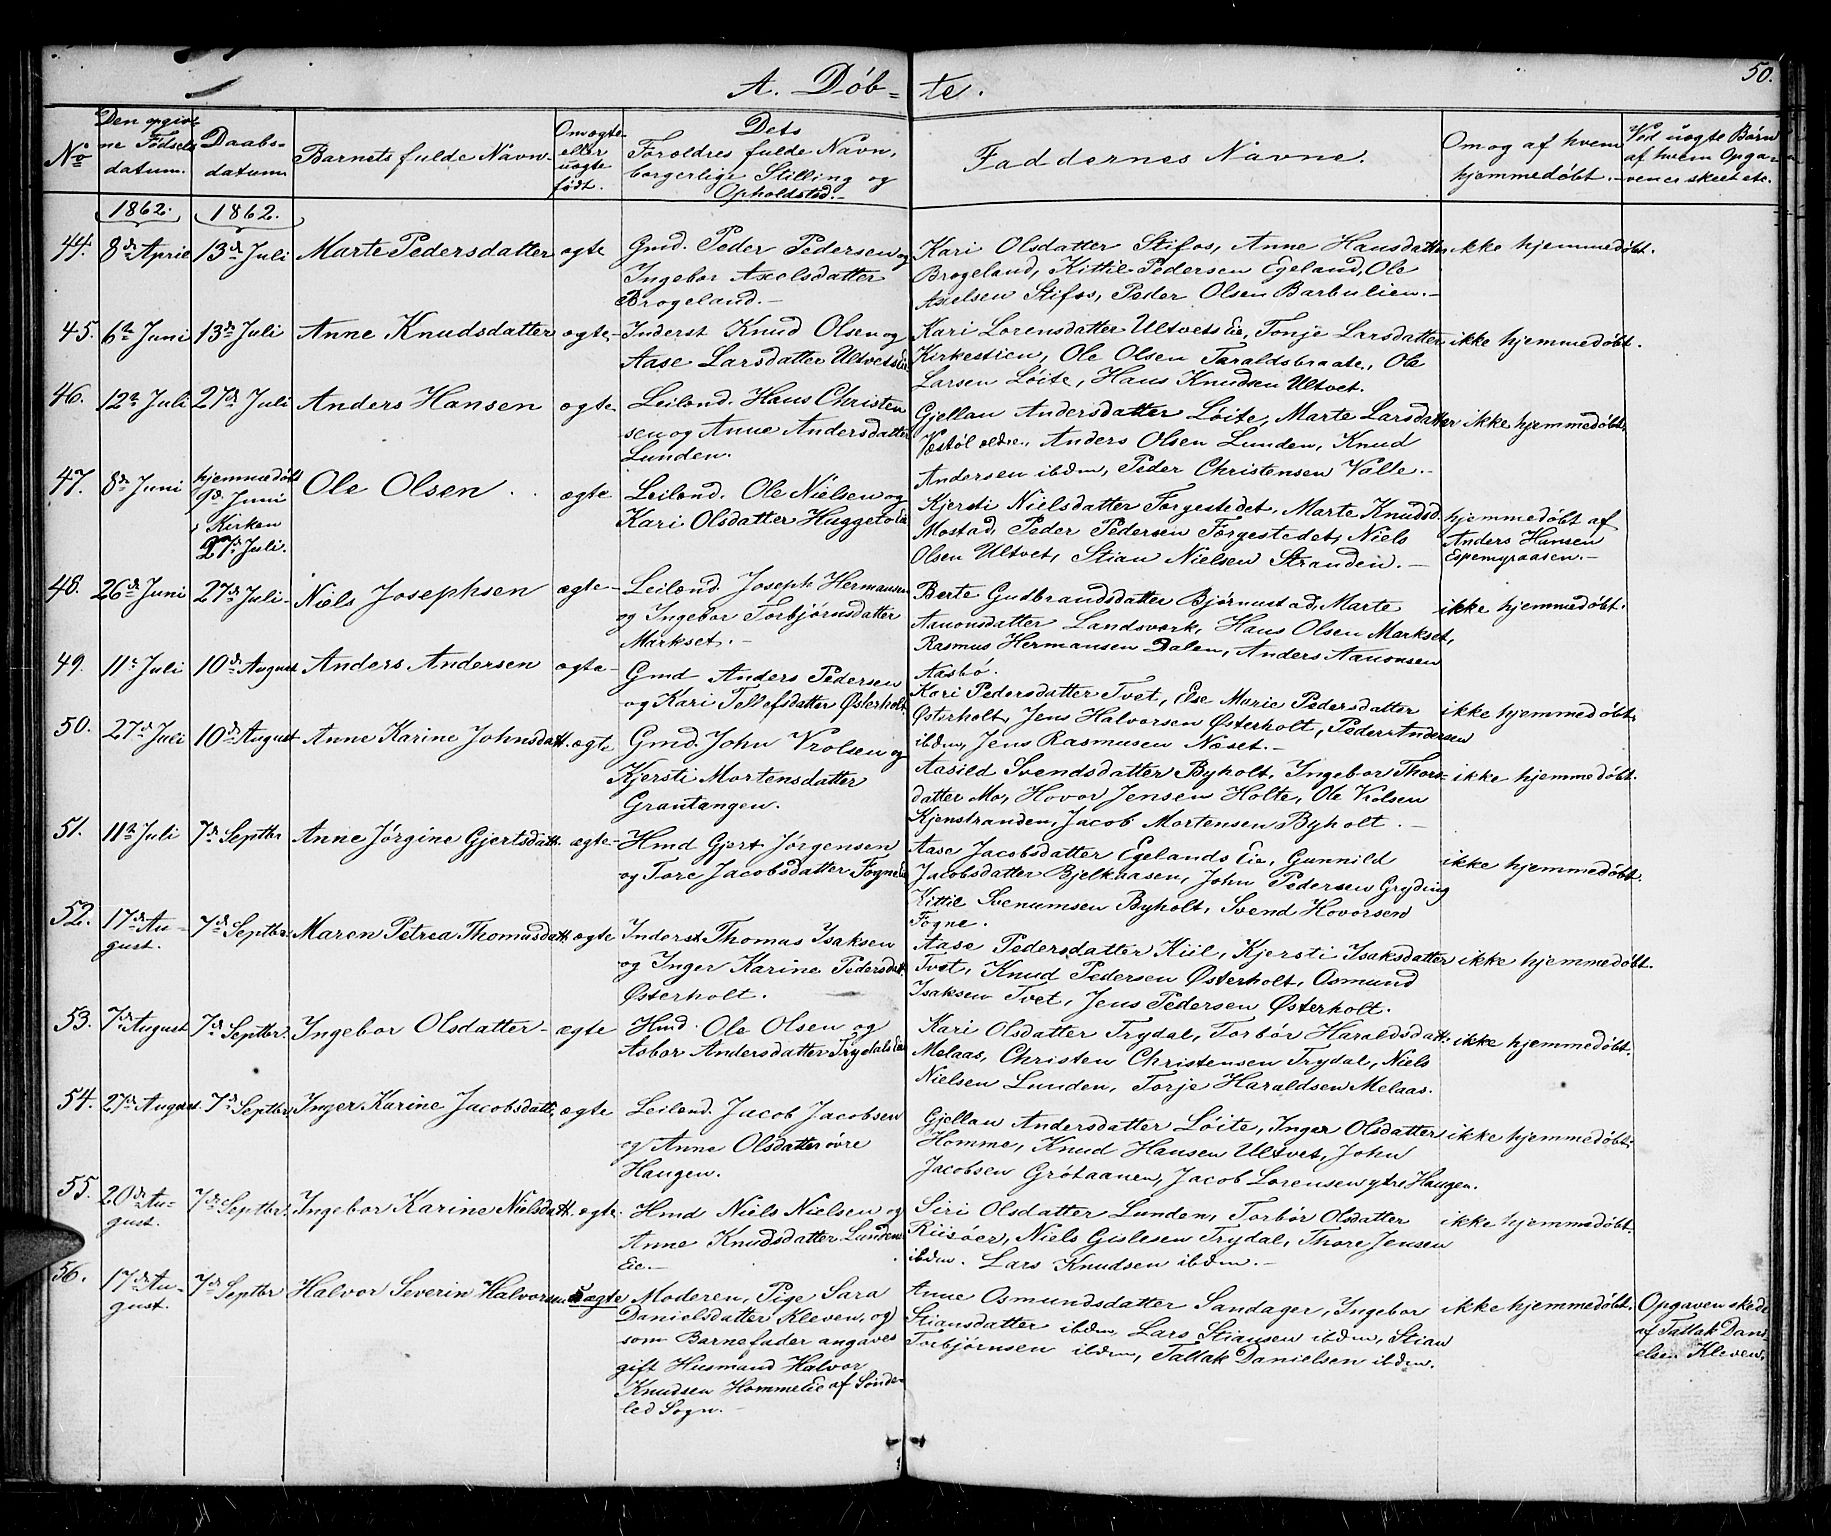 A. Døbte.
50.
No
Den opgivne Fødselsdatum.
Daabsdatum.
Barnets fulde Navn.
Om ægte eller uægte født.
Dets Forældres fulde Navn, borgerlige Stilling og Opholdsted.
Faddernes Navne.
Om og af hvem hjemmedøbt.
Ved uægte Børn af hvem Opgavenes skeet etc.
1862. 1862.
44. 8de April 13de Juli Marte Pedersdatter ægte
Gmd. Peder Pedersen og
Ingebor Axelsdatter
Brogeland.
Kari Olsdatter Stifos, Anne Hansdatter
Brogeland, Kittil Pedersen Egeland, Ole
Axelsen Stifos, Peder Olsen Barbulien.
ikke hjemmedøbt.
45. 6te Juni 13de Juli Anne Knudsdatter ægte
Inderst Knud Olsen og
Aase Larsdatter Ultvets Eie
Kari Lorensdatter Ultvets Eie, Tonje Larsdatter
Kirkestien, Ole Olsen Taraldsbraate, Ole
Larsen Løite, Hans Knudsen Ultvet.
ikke hjemmedøbt.
46. 12te Juli 27de Juli Anders Hansen ægte
Leilænd. Hans Christen
sen og Anne Andersdatter
Lunden.
Gjellau Andersdatter Løite, Marte Larsdatter
Vestøl ældre, Anders Olsen Lunden, Knud
Andersen ibdm, Peder Christensen Valle.
ikke hjemmedøbt.
47. 8de Juni hjemmedøbt
9de Juni
i Kirken
27de Juli.
Ole Olsen ægte
Leilænd. Ole Nielsen og
Kari Olsdatter Huggeto Eie
Kjersti Nielsdatter Forgestedet, Marte Knudsd.
Mostad, Peder Pedersen Forgestedet, Niels
Olsen Ultvet, Stian Nielsen Stranden.
hjemmedøbt af
Anders Hansen
Epemyraasen.
48. 26de Juni 27de Juli Niels Josephsen ægte
Leilænd. Joseph Hermansen
og Ingebor Torbjørnsdatter
Markset.
Berte Gudbrandsdatter Bjørnustad, Marte
Aanonsdatter Landsverk, Hans Olsen Markset,
Rasmus Hermansen Dalen, Anders Aanonsen
Aasbø.
ikke hjemmedøbt.
49. 11te Juli 10de August Anders Andersen ægte
Gmd Anders Pedersen
og Kari Tellefsdatter Østerholt
Kari Pedersdatter Tvet, Else Marie Pedersdatter
Østerholt, Jens Halvorsen Østerholt, Peder Andersen
ibdm, Jens Rasmusen Næset.
ikke hjemmedøbt.
50. 27de Juli 10de August Anne Karine Johnsdatt. ægte
Gmd. John Vrolsen og
Kjersti Mortensdatter
Grantangen.
Aasild Svendsdatter Byholt, Ingebor Thors-
datter Mo, Hovor Jensen Holte, Ole Vrolsen
Kjenstranden, Jacob Mortensen Byholt.
ikke hjemmedøbt.
51. 11te Juli 7de Septbr Anne Jørgine Gjertsdatt. ægte
Hmd Gjert Jørgensen
og Tore Jacobsdatter Fogne Eie
Aase Jacobsdatter Egelands Eie, Gunnild
Jacobsdatter Bjelkaasen, John Pedersen Gryding
Kittil Svenumsen Byholt, Svend Hovorsen
Fogne.
ikke hjemmedøbt.
52. 17de Au-
gust. 7de Septbr. Maren Petrea Thomasdatt. ægte
Inderst Thomas Isaksen
og Inger Karine Pedersdatt.
Østerholt.
Aase Pedersdatter Kiil, Kjersti Isaksdatter
Tvet, Knud Pedersen Østerholt, Osmund
Isaksen Tvet, Jens Pedersen Østerholt.
ikke hjemmedøbt.
53. 7de August 7de Septbr. Ingebor Olsdatter ægte
Hmd. Ole Olsen og
Asbor Andersdatter Trydals Eie
Kari Olsdatter Trydal, Torbør Haraldsdatt.
Melaas, Christen Christensen Trydal, Niels
Nielsen Lunden, Torje Haraldsen Melaas.
ikke hjemmedøbt.
54. 27de August. 7de Septbr. Inger Karine Jacobsdatt. ægte
Leilænd. Jacob Jacobsen
og Anne Olsdatter øvre
Haugen.
Gjellau Andersdatter Løite, Inger Olsdatter
Homme, Knud Hansen Ultvet, John
Jacobsen Grøtaanen, Jacob Lorensen ytre Haugen.
ikke hjemmedøbt.
55. 20de Au-
gust. 7de Septbr. Ingebor Karine Nielsdatt. ægte.
Hmd Niels Nielsen og
Anne Knudsdatter Lunden
Eie.
Siri Olsdatter Lunden, Torbør Olsdatter
Riisøer, Niels Gislesen Trydal, Thore Jensen
ibdm. Lars Knudsen ibdm.
ikke hjemmedøbt.
56. 17de Au-
gust. 7de Septbr Halvor Severin Halvorsen uægte
Moderen, Pige Sara
Danielsdatter Kleven, og
som Barnefader angaves
gift Husmand Halvor
Knudsen Homme Eie af Sønde-
led Sogn.
Anne Osmundsdatter Sandager, Ingebor
Stiansdatter ibdm, Lars Stiansen ibdm, Stian
Torbjørnsen ibdm, Tallak Danielsen ibdm.
ikke hjemmedøbt.
Opgaven skede
af Tallak Dani-
elsen Kleven.